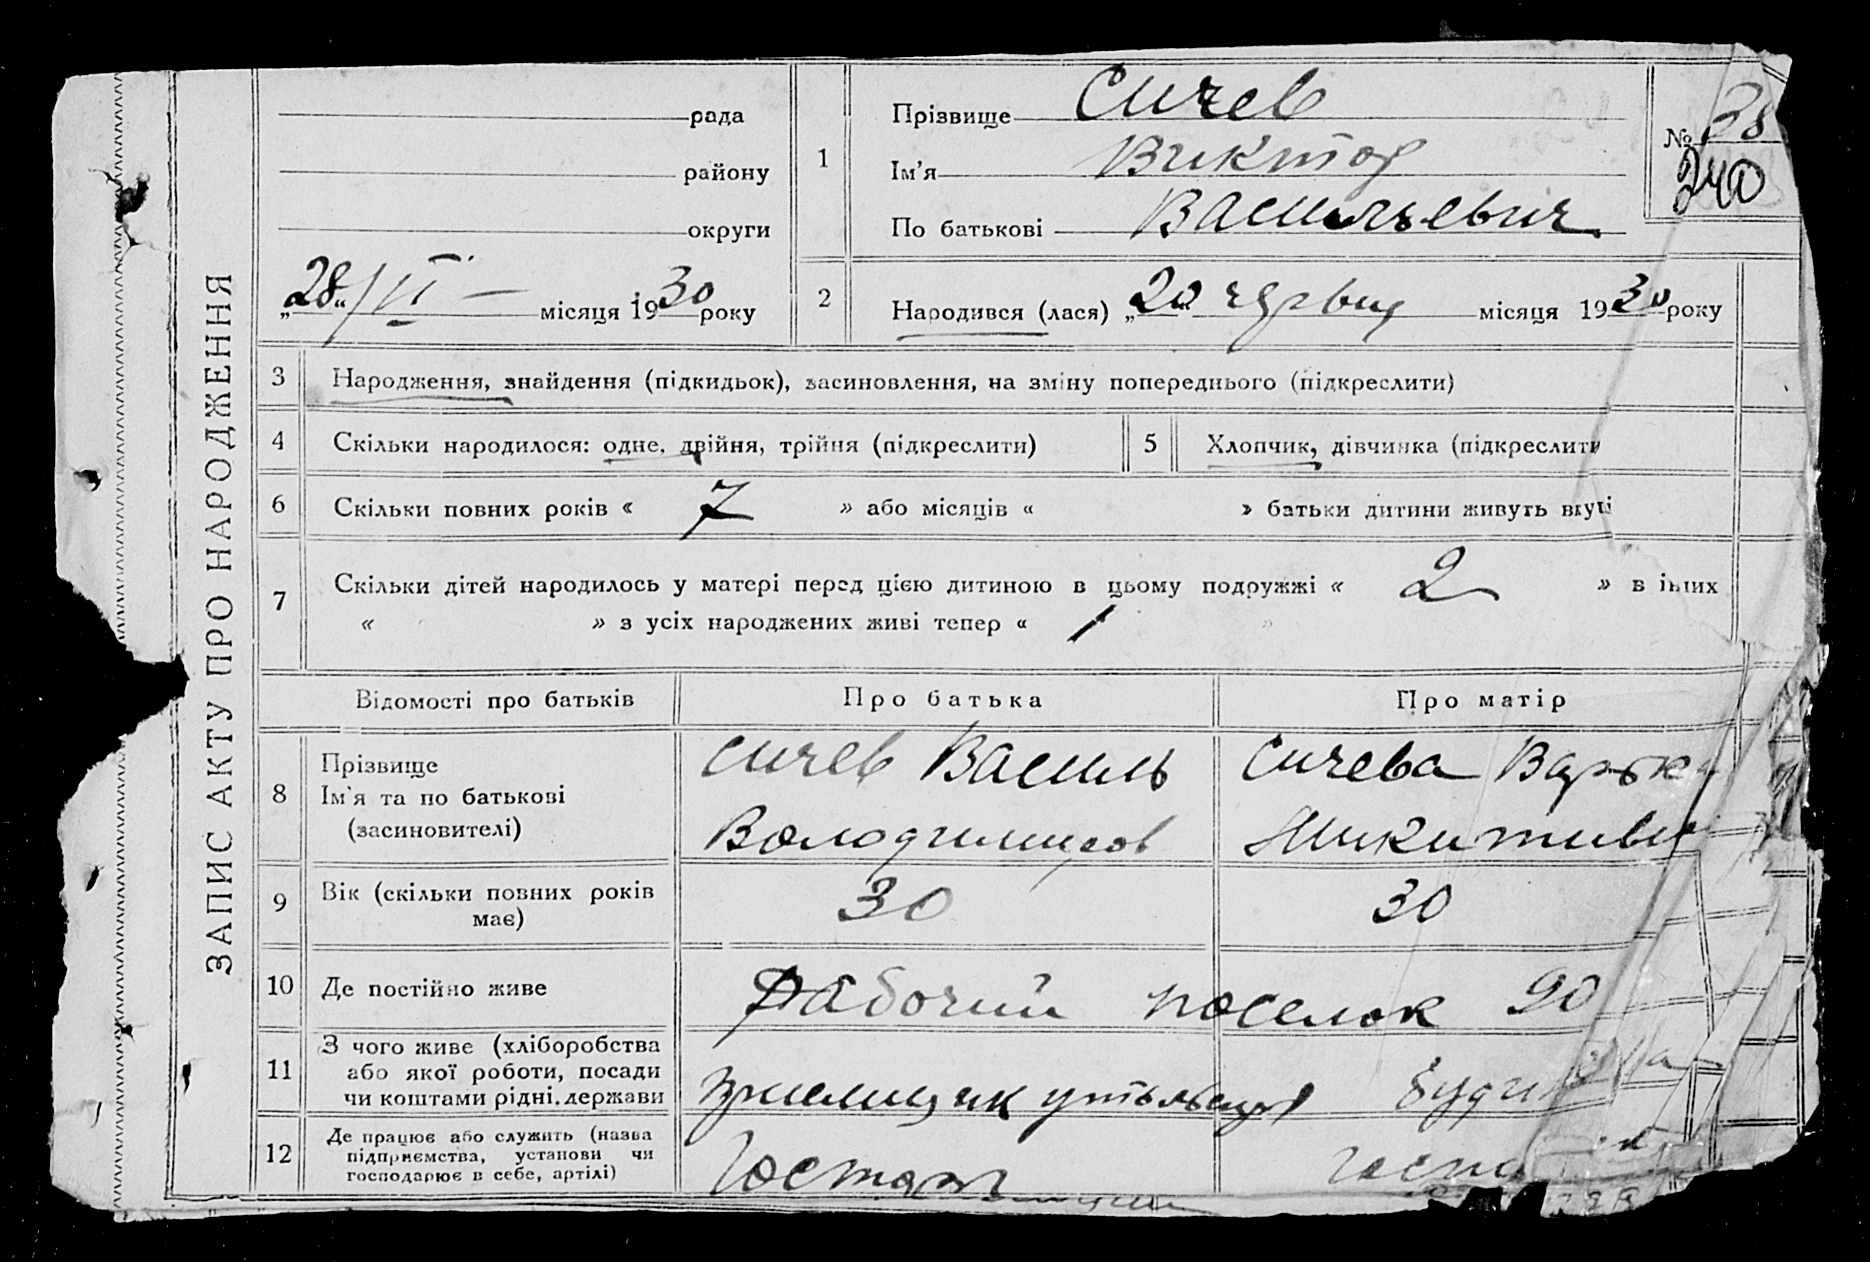 ЗАПИС АКТУ ПРО НАРОДЖЕННЯ
рада
району
округи
„28“/VI – місяця 1930 року
1
Прізвище Сичев
Ім'я Виктор
По батькові Васильевич
№ 38
240
2
Народився (лася) „20“ червня місяця 1930 року
3 Народження, знайдення (підкидьок), засиновлення, на зміну попереднього (підкреслити)
4 Скільки народилося: одне, двійня, трійня (підкреслити)
5 Хлопчик, дівчинка (підкреслити
6 Скільки повних років « 7 » або місяців « » батьки дитини живуть вкупі
7 Скільки дітей народилось у матері перед цією дитиною в цьому подружжі « 2 » в інших
« » з усіх народжених живі тепер « 1 »
Відомості про батьків Про батька Про матір
8 Прізвище
Ім'я та по батькові
(засиновителі)
Сичев Василь
Володимиров
Сичева Варьк
Никитивн
9 Вік (скільки повних років має) 30 30
10 Де постійно живе Рабочий поселок 90
11 З чого живе (хліборобства
або якої роботи, посади
чи коштами рідні, держави
12 Де працює або служить (назва
підприємства, установи чи
господарює в себе, артілі)